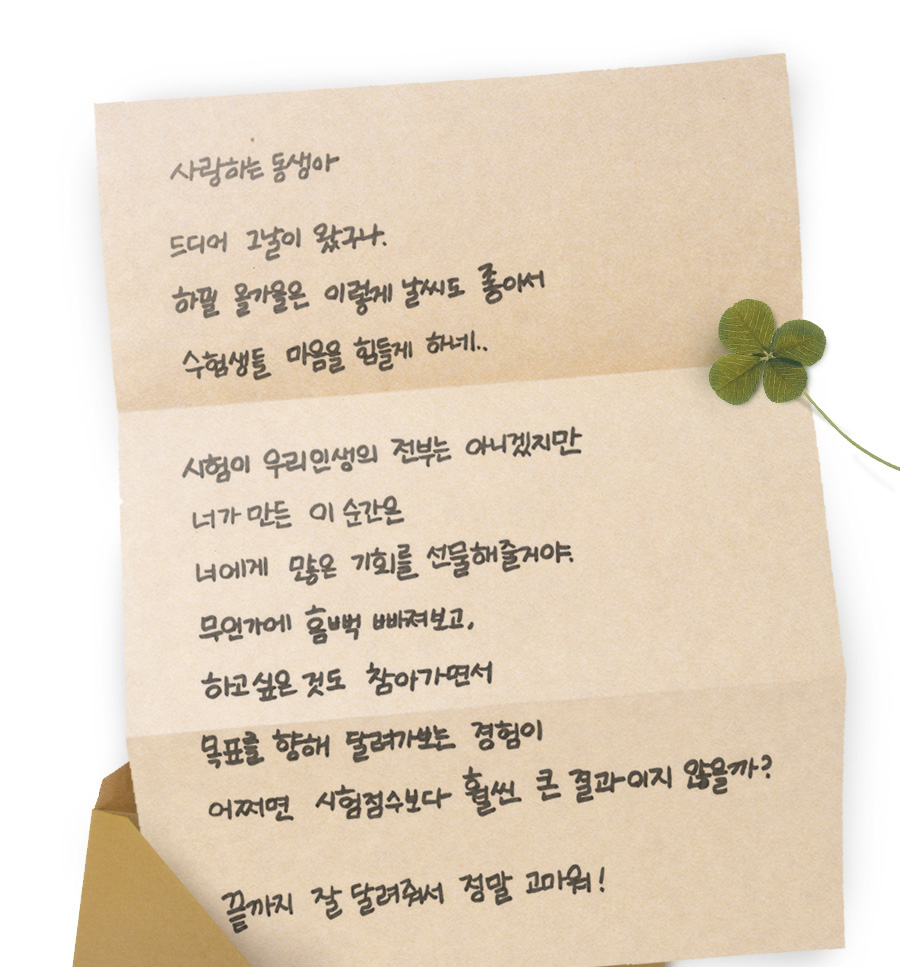 사랑하는 동생아
드디어 그날이 왔구나.
하필 올가을은 이렇게 날씨도 좋아서
수험생들 마음을 힘들게 하네..
시험이 우리인생의 전부는 아니겠지만
너가 만든 이 순간은
너에게 많은 기회를 선물해줄거야.
무언가에 흠뻑 빠져보고,
하고싶은 것도 참아가면서
목표를 향해 달려가보는 경험이
어쩌면 시험점수보다 훨씬 큰 결과이지 않을까?
끝까지 잘 달려줘서 정말 고마워!